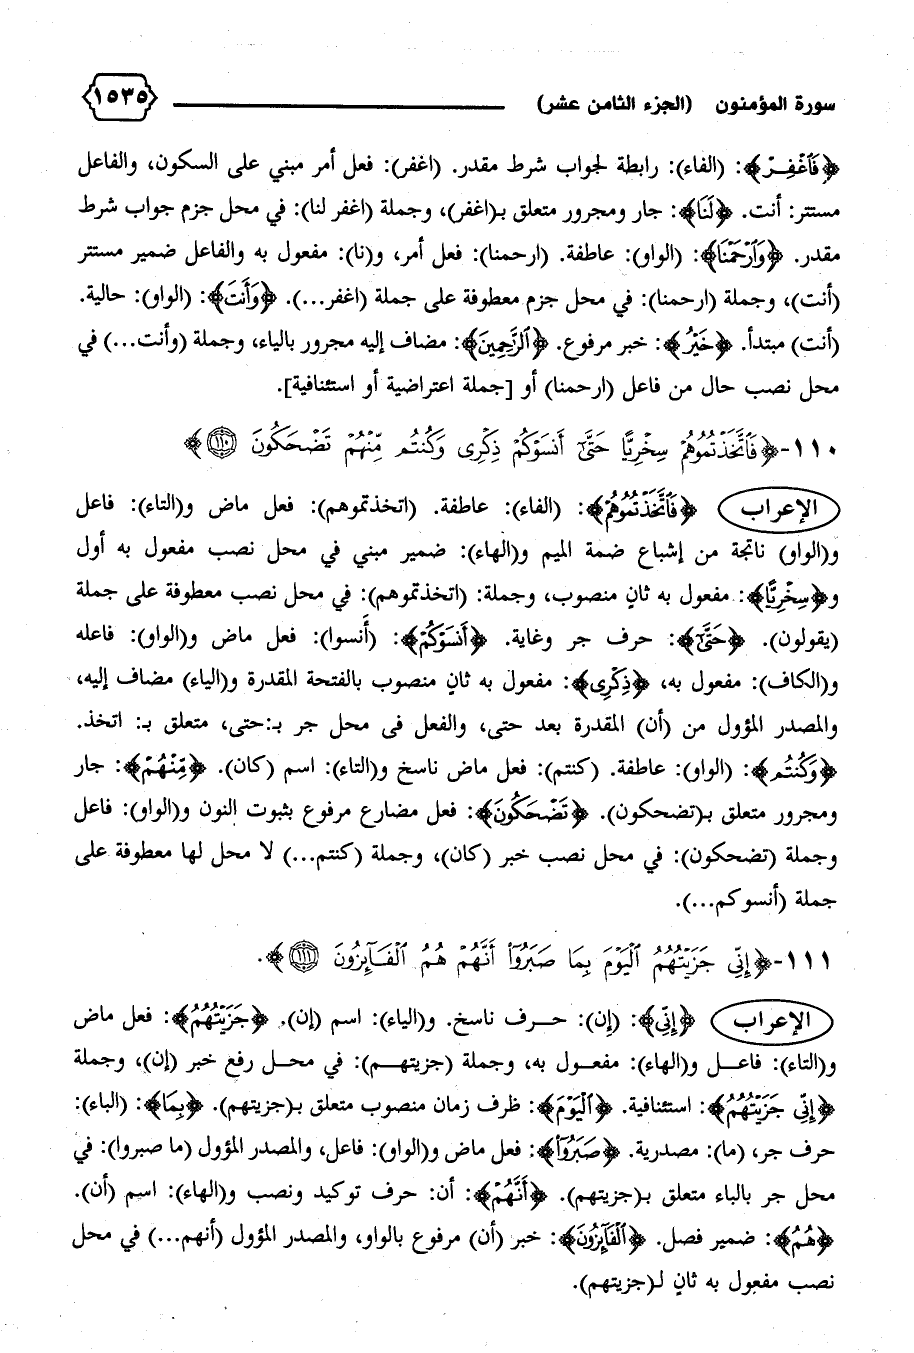 سورة المؤمنون (الجزء الثامن عشر) ١٥٣٥
﴿فَاغْفِرْ﴾: (الفاء): رابطة لجواب شرط مقدر. (اغفر): فعل أمر مبني على السكون، والفاعل
مستتر: أنت. ﴿لَنَا﴾: جار ومجرور متعلق بـ(اغفر)، وجملة (اغفر لنا): في محل جزم جواب شرط
مقدر. ﴿وَارْحَمْنَا﴾: (الواو): عاطفة. (ارحمنا): فعل أمر، و(نا): مفعول به والفاعل ضمير مستتر
(أنت)، وجملة (ارحمنا): في محل جزم معطوفة على جملة (اغفر...). ﴿وَأَنتَ﴾: (الواو): حالية.
(أنت) مبتدأ. ﴿خَيْرُ﴾: خبر مرفوع. ﴿ٱلرَّٰحِمِينَ﴾: مضاف إليه مجرور بالياء، وجملة (وأنت...) في
محل نصب حال من فاعل (ارحمنا) أو [جملة اعتراضية أو استئنافية].
١١٠-﴿فَٱتَّخَذْتُمُوهُمْ سِخْرِيًّا حَتَّىٰٓ أَنسَوْكُمْ ذِكْرِى وَكُنتُم مِّنْهُمْ تَضْحَكُونَ ١١٠﴾
الإعراب ﴿فَٱتَّخَذْتُمُوهُمْ﴾: (الفاء): عاطفة. (اتخذتموهم): فعل ماض و(التاء): فاعل
و(الواو) ناتجة من إشباع ضمة الميم و(الهاء): ضمير مبني في محل نصب مفعول به أول
و﴿سِخْرِيًّا﴾: مفعول به ثانٍ منصوب، وجملة: (اتخذتموهم): في محل نصب معطوفة على جملة
(يقولون). ﴿حَتَّىٰٓ﴾: حرف جر وغاية. ﴿أَنسَوْكُمْ﴾: (أَنسوا): فعل ماض و(الواو): فاعله
و(الكاف): مفعول به، ﴿ذِكْرِى﴾: مفعول به ثانٍ منصوب بالفتحة المقدرة و(الياء) مضاف إليه،
والمصدر المؤول من (أن) المقدرة بعد حتى، والفعل فى محل جر بـ:حتى، متعلق بـ: اتخذ.
﴿وَكُنتُم﴾: (الواو): عاطفة. (كنتم): فعل ماض ناسخ و(التاء): اسم (كان). ﴿مِّنْهُمْ﴾: جار
ومجرور متعلق بـ(تضحكون). ﴿تَضْحَكُونَ﴾: فعل مضارع مرفوع بثبوت النون و(الواو): فاعل
وجملة (تضحكون): في محل نصب خبر (كان)، وجملة (كنتم...) لا محل لها معطوفة على
جملة (أنسوكم...).
١١١-﴿إِنِّى جَزَيْتُهُمُ ٱلْيَوْمَ بِمَا صَبَرُوٓا۟ أَنَّهُمْ هُمُ ٱلْفَآئِزُونَ ١١١﴾.
الإعراب ﴿إِنِّى﴾: (إن): حرف ناسخ. و(الياء): اسم (إن). ﴿جَزَيْتُهُمُ﴾: فعل ماض
و(التاء): فاعل و(الهاء): مفعول به، وجملة (جزيتهم): في محل رفع خبر (إن)، وجملة
﴿إِنِّى جَزَيْتُهُمُ﴾: استئنافية. ﴿ٱلْيَوْمَ﴾: ظرف زمان منصوب متعلق بـ(جزيتهم). ﴿بِمَا﴾: (الباء):
حرف جر، (ما): مصدرية. ﴿صَبَرُوٓا۟﴾: فعل ماض و(الواو): فاعل، والمصدر المؤول (ما صبروا): في
محل جر بالباء متعلق بـ(جزيتهم). ﴿أَنَّهُمْ﴾: أن: حرف توكيد ونصب و(الهاء): اسم (أن).
﴿هُمُ﴾: ضمير فصل. ﴿ٱلْفَآئِزُونَ﴾: خبر (أن) مرفوع بالواو، والمصدر المؤول (أنهم...) في محل
نصب مفعول به ثانٍ لـ(جزيتهم).